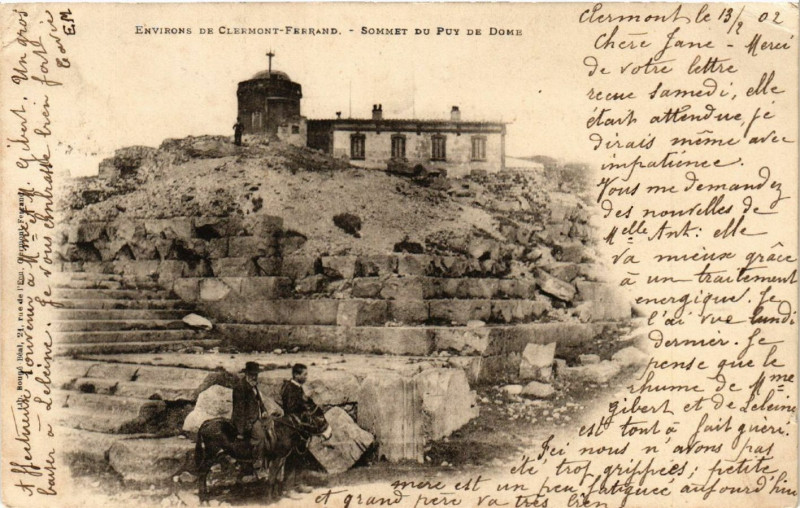 ENVIRONS DE CLERMONT-FERRAND. - SOMMET DU PUY DE DOME
Clermont le 13/2 02
Chère Jane - Merci
de votre lettre
reçue samedi, elle
était attendue, je
dirais même avec
impatience.
Vous me demandez
des nouvelles de
Melle Ant: elle
va mieux grâce
à un traitement
energique. Je
l'ai vue lundi
dernier. Je
pense que le
rhume de Mme
Gibert et de Leleine
est tout à fait guéri.
Ici nous n'avons pas
été trop grippées; petite
mère est un peu fatiguée aujourd'hui
et grand père va très bien
Affectueux souvenirs à Mme et M. Gibert. Un gros
baiser à Leleine. Je vous embrasse bien fort
E.M
21, rue de